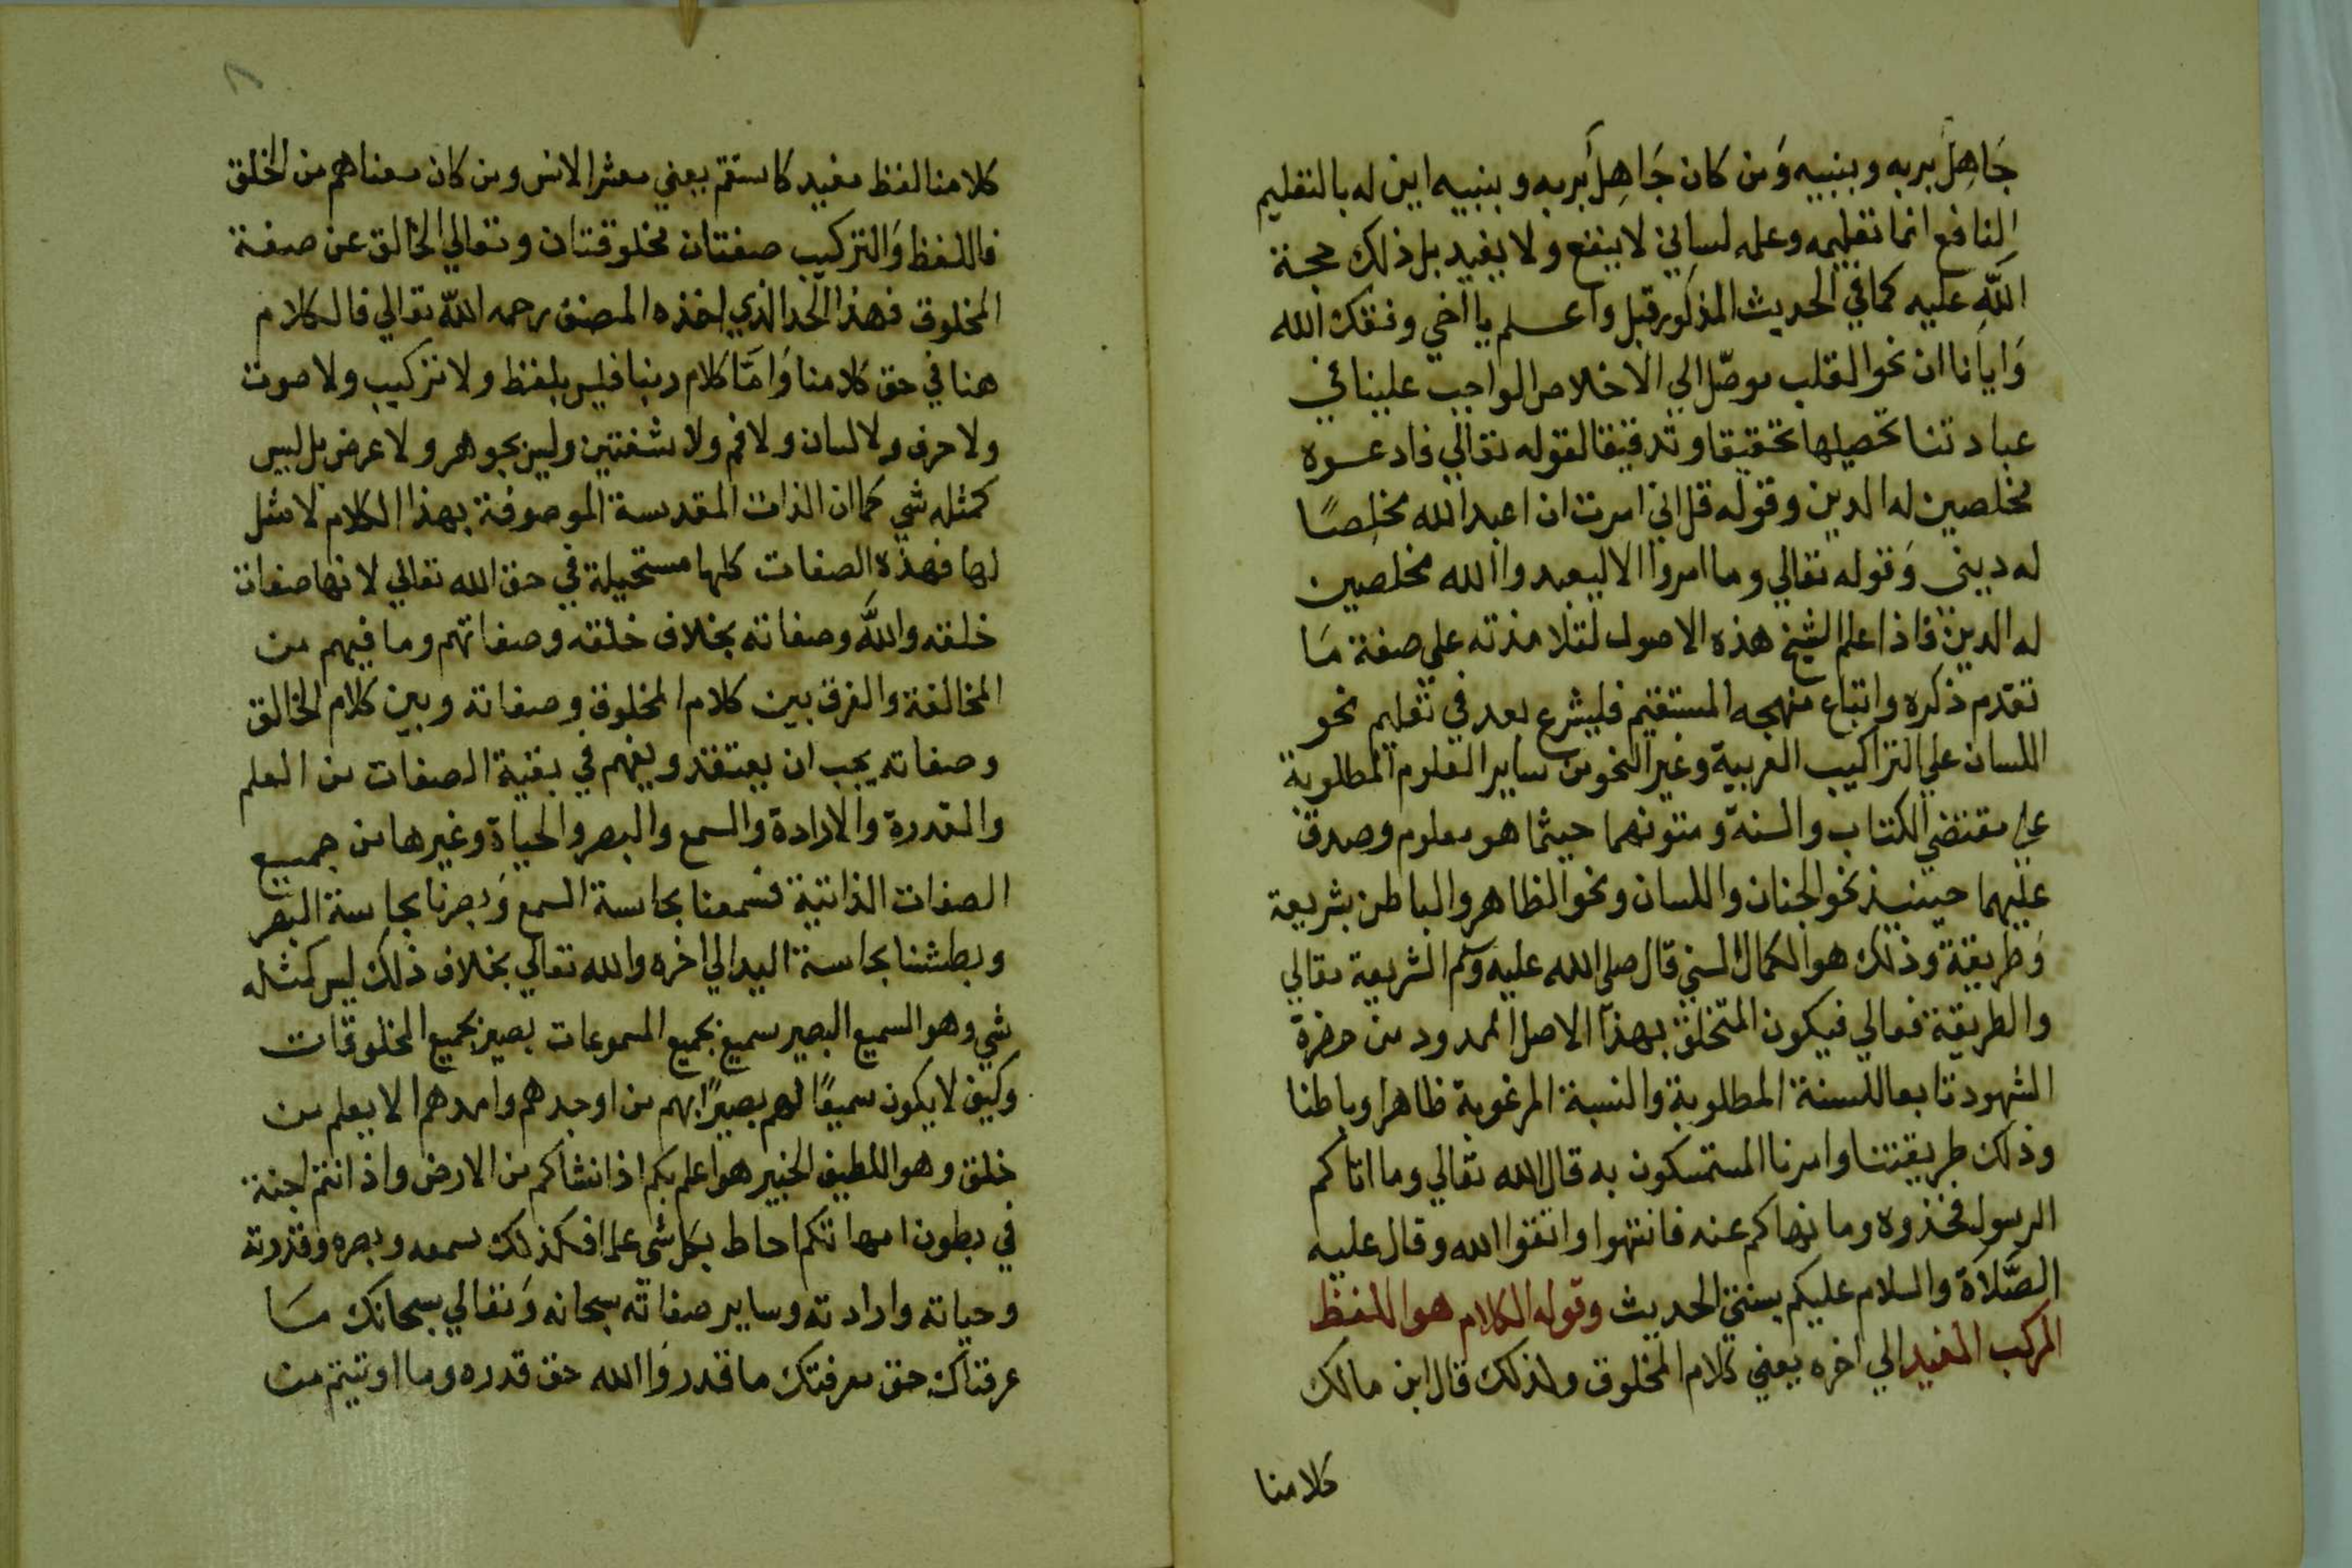 جَاهِلَ بربه وبنبيه وَمن كان جَاهِلَ بربه وبنبيه اين له بالتعليم
النافع انما تعليمه وعلمه لساني لا ينفع ولا يفيد بل ذلك حجة
اللّه عليه كما في الحديث المذكور قبل واعلم يا اخي وفقك الله
وَايانا ان نحو القلب موصّل الي الاخلاص الواجب علينا في
عبادتنا تحصيلها تحقيقا وتدقيقا لقوله تعالي فادعوه
مخلصين له الدين وقوله قل اني امرت ان اعبد الله مخلِصًا
له ديني وَقوله تعالي وما امروا الا ليعبدوا الله مخلصين
له الدين فاذا علم الشيخ هذه الاصول لتلامذته علي صفة مَا
تقدم ذكره واتباع منهجه المستقيم فليشرع بعد في تعليم نحو
اللسان علي التراكيب العربية وغير النحو من ساير العلوم المطلوبة
علي مقتضي الكتاب والسنة ومتونهما حيثما هو معلوم وصدق
عليهما حينيذ نحو الجنان واللسان ونحو الظاهر والباطن بشريعة
وَطريقة وذلك هو الكمال السني قال صلي الله عليه وسلم الشريعة مقالي
والطريقة فعالي فيكون المتخلق بهذا الاصل الممدود من حضرة
الشهود تابعا للسنة المطلوبة والنسبة المرغوبة ظاهرا وباطنا
وذلك طريقتنا وامرنا المستمسكون به قال الله تعالي وما اتاكم
الرسول فخذوه وما نهاكم عنه فانتهوا واتقوا الله وقال عليه
الصَّلاة والسلام عليكم بسنتي الحديث وقوله الكلام هو اللفظ
المركب المفيد الي اخره يعني كلام المخلوق ولذلك قال ابن مالك
كلامنا
كلامنا لفظ مفيد كاستقم يعني معشر الانس ومن كان معناهم من الخلق
فاللفظ وَالتركيب صفتان مخلوقتان وتعالي الخالق عن صفة
المخلوق فهذا الحد الذي اخذه المصنف رحمه اللّه تعالي فالكلام
هنا في حق كلامنا وَامَّا كلام ربنا فليس بلفظ ولا تركيب ولا صوت
ولا حرف ولا لسان ولا فم ولا شفتين وليس بجوهر ولا عرض بل ليس
كمثله شي كما ان الذات المقدسة الموصوفة بهذا الكلام لا مثل
لها فهذه الصفات كلها مستحيلة في حق الله تعالي لانها صفات
خلقه واللّه وصفاته بخلاف خلقه وصفاتهم وما فيهم من
المخالفة والفرق بين كلام المخلوق وصفاته وبين كلام الخالق
وصفاته يجب ان يعتقد ويفهم في بقية الصفات من العلم
والقدرة والارادة والسمع والبصر والحياة وغيرها من جميع
الصفات الذاتية فسمعنا بحاسة السمع وَبصرنا بحاسة البصر
وبطشنا بحاسة اليد الي اخره والله تعالي بخلاف ذلك ليس كمثله
شي وهو السميع البصير سميع بجميع المسموعات بصير بجميع المخلوقات
وكيف لا يكون سميعًا لهم بصيرًا بهم من اوجدهم وامدهم الا يعلم من
خلق وهو اللطيف الخبير هو اعلم بكم اذ انشاكم من الارض واذ انتم اجنة
في بطون امهاتكم احاط بكل شي علما فكذلك سمعه وبصره وقدرته
وحياته وارادته وساير صفاته سبحانه وَتعالي سبحانك مَا
عرفناك حق معرفتك ما قدروا الله حق قدره وما اوتيتم من